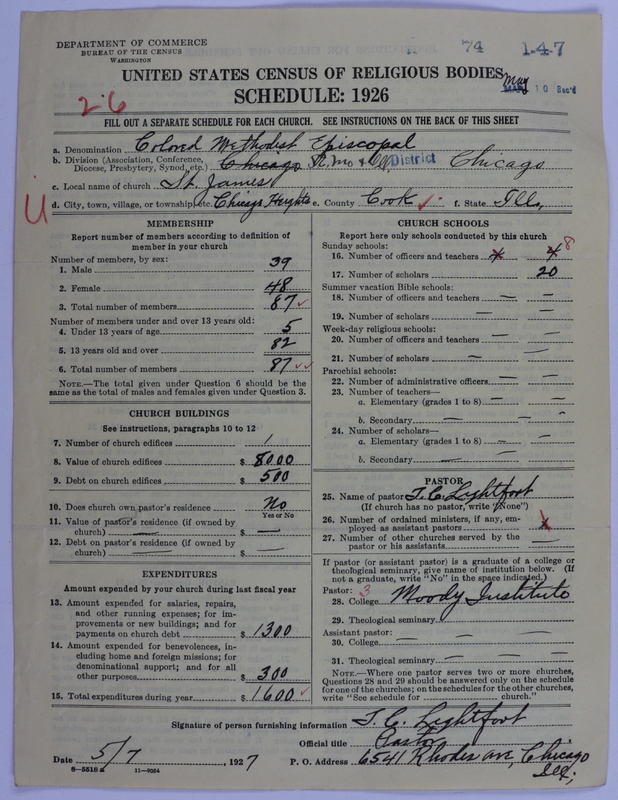 74 1-4-7
DEPARTMENT OF COMMERCE
BUREAU OF THE CENSUS
WASHINGTON
UNITED STATES CENSUS OF RELIGIOUS BODIES
May
MAR 10 Rec'd
SCHEDULE: 1926
26
FILL OUT A SEPARATE SCHEDULE FOR EACH CHURCH. SEE INSTRUCTIONS ON THE BACK OF THIS SHEET
a. Denomination Colored Methodist Episcopal
b. Division (Association, Conference, Diocese, Presbytery, Synod, etc.) Chicago Mo & Ill District Chicago
c. Local name of church St. James
U
d. City, town, village, or township, etc. Chicago Heights e. County Cook f. State Ill,
MEMBERSHIP
Report number of members according to definition of member in your church
Number of members, by sex:
1. Male 39
2. Female 48
3. Total number of members 87
Number of members under and over 13 years old:
4. Under 13 years of age 5
5. 13 years old and over 82
6. Total number of members 87
NOTE.—The total given under Question 6 should be the same as the total of males and females given under Question 3.
CHURCH BUILDINGS
See instructions, paragraphs 10 to 12
7. Number of church edifices 1
8. Value of church edifices $ 8000
9. Debt on church edifices $ 500
10. Does church own pastor's residence No
Yes or No
11. Value of pastor's residence (if owned by church) — $ —
12. Debt on pastor's residence (if owned by church) — $ —
EXPENDITURES
Amount expended by your church during last fiscal year
13. Amount expended for salaries, repairs, and other running expenses; for improvements or new buildings; and for payments on church debt $ 1300
14. Amount expended for benevolences, including home and foreign missions; for denominational support; and for all other purposes $ 300
15. Total expenditures during year $ 1600
CHURCH SCHOOLS
Report here only schools conducted by this church
Sunday schools:
16. Number of officers and teachers 4 4 8
17. Number of scholars 20
Summer vacation Bible schools:
18. Number of officers and teachers — —
19. Number of scholars — —
Week-day religious schools:
20. Number of officers and teachers — —
21. Number of scholars — —
Parochial schools:
22. Number of administrative officers — —
23. Number of teachers—
a. Elementary (grades 1 to 8) — —
b. Secondary — —
24. Number of scholars—
a. Elementary (grades 1 to 8) — —
b. Secondary —
PASTOR
25. Name of pastor T. C. Lightfort
(If church has no pastor, write "None")
26. Number of ordained ministers, if any, employed as assistant pastors 1
27. Number of other churches served by the pastor or his assistants —
If pastor (or assistant pastor) is a graduate of a college or theological seminary, give name of institution below. (If not a graduate, write "No" in the space indicated.)
Pastor: 3
28. College Moody Institute
29. Theological seminary — —
Assistant pastor:
30. College — —
31. Theological seminary — —
NOTE.—Where one pastor serves two or more churches, Questions 28 and 29 should be answered only on the schedule for one of the churches; on the schedules for the other churches, write "See schedule for church."
Signature of person furnishing information T. C. Lightfort
Official title Pastor
Date 5/7, 1927 P. O. Address 6541 Rhodes ave, Chicago
Ill;
8—5518 a 11—9054